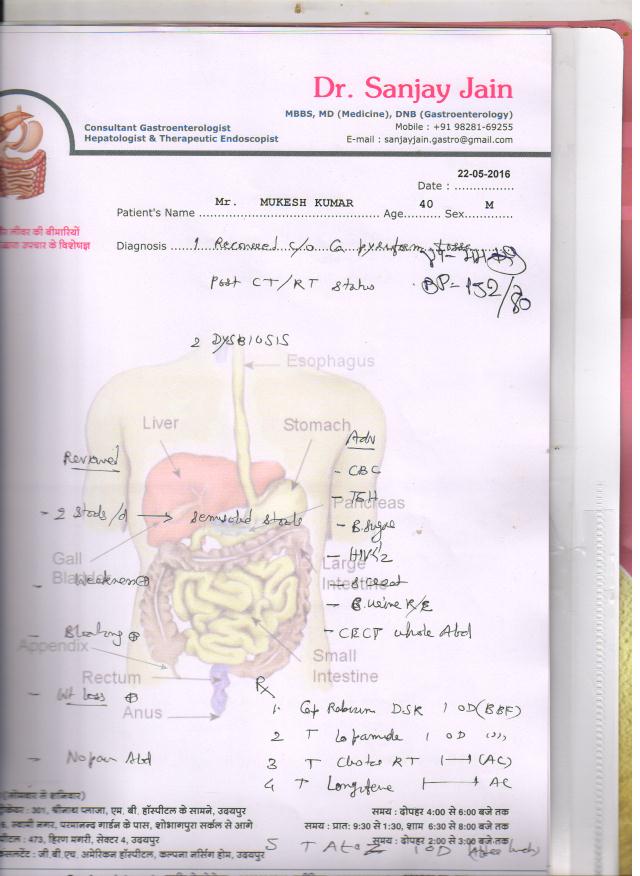 Dr. Sanjay Jain
MBBS, MD (Medicine), DNB (Gastroenterology)
Mobile : +91 98281-69255
E-mail : sanjayjain.gastro@gmail.com
Consultant Gastroenterologist
Hepatologist & Therapeutic Endoscopist
22-05-2016
Date : ................
Mr. MUKESH KUMAR 40 M
Patient's Name ............ Age.......... Sex.............
लीवर की बीमारियों
उपचार के विशेषज्ञ
Diagnosis ...... 1 Recovered c/o Ca pyriform fossa
Post CT/RT status
BP=152/80
2 DYSBIOSIS
Esophagus
Liver
Stomach
Reviewed
- 2 stools/d → semisolid stools
Gall
- Weakness ⊕
- Bloating ⊕
Appendix
- Wt loss ⊕
Rectum
Anus
- No pain Abd
Adv
- CBC
- TSH
Pancreas
- B.sugar
- HIV 1/2
Large
Intestine
- S creat
- urine R/E
- CECT whole Abd
Small
Intestine
Rx
1. Cap DSR 1 OD (BBF)
2 T Lopamide 1 OD
3 T RT 1—1 (AC)
4 T 1—1 AC
5 T A to Z 1 OD
301, श्रीनाथ प्लाजा, एम. बी. हॉस्पीटल के सामने, उदयपुर
समय : दोपहर 4:00 से 6:00 बजे तक
स्वामी नगर, परमानन्द गार्डन के पास, शोभागपुरा सर्कल से आगे
समय : प्रात: 9:30 से 1:30, शाम 6:30 से 8:00 बजे तक
473, हिरण मगरी, सेक्टर 4, उदयपुर
समय : दोपहर 2:00 से 3:00 बजे तक
जी.बी.एच. अमेरिकन हॉस्पीटल, कल्पना नर्सिंग होम, उदयपुर